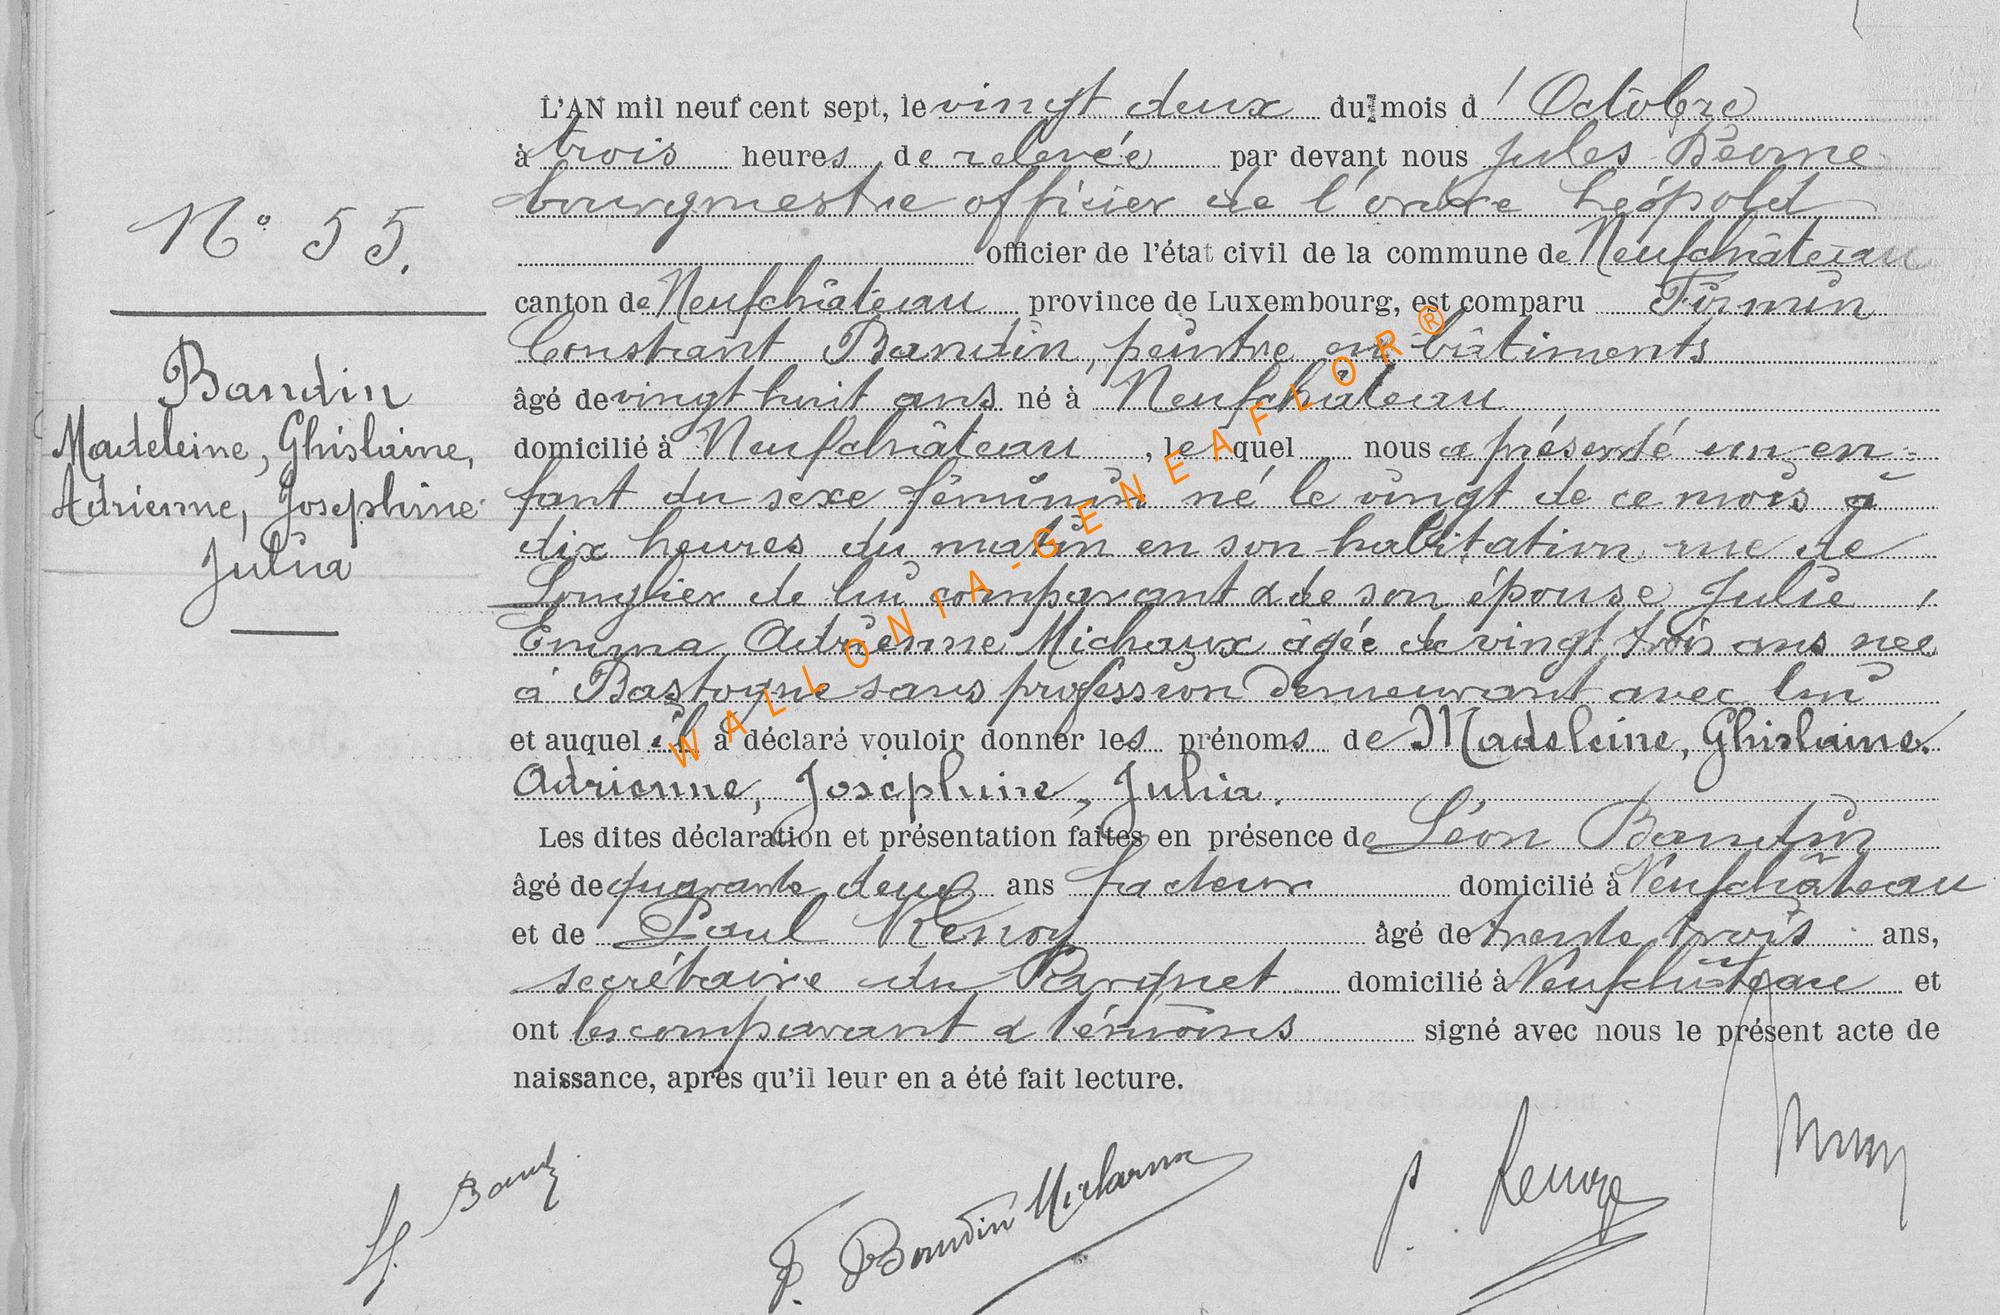 L'AN mil neuf cent sept, le vingt deux du mois d'Octobre
à trois heures de relevée par devant nous Jules
bourgmestre officier de l'ordre Léopold
officier de l'état civil de la commune de Neufchâteau
N° 55.
canton de Neufchâteau province de Luxembourg, est comparu Firmin
Constant Baudin, peintre en bâtiments
âgé de vingt huit ans né à Neufchâteau
domicilié à Neufchâteau, lequel nous a présenté un en-
fant du sexe féminin né le vingt de ce mois à
dix heures du matin en son habitation rue de
Longlier de lui comparant & de son épouse Julie,
Emma Adrienne Michaux âgée de vingt trois ans née
à Bastogne sans profession demeurant avec lui
et auquel il a déclaré vouloir donner les prénoms de Madeleine, Ghislaine,
Adrienne, Joséphine, Julia.
Les dites déclaration et présentation faites en présence de Léon Baudin
âgé de quarante deux ans facteur domicilié à Neufchâteau
et de Paul Renoy âgé de trente trois ans,
secrétaire du Parquet domicilié à Neufchâteau et
ont les comparant & témoins signé avec nous le présent acte de
naissance, après qu'il leur en a été fait lecture.
Baudin
Madeleine, Ghislaine,
Adrienne, Josephine
Julia
F. Baudin Michaux
WALLONIA-GENEAFLOR®